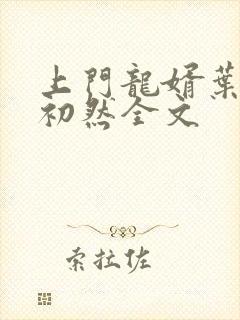 上門龍婿葉
初然全文
索拉佐